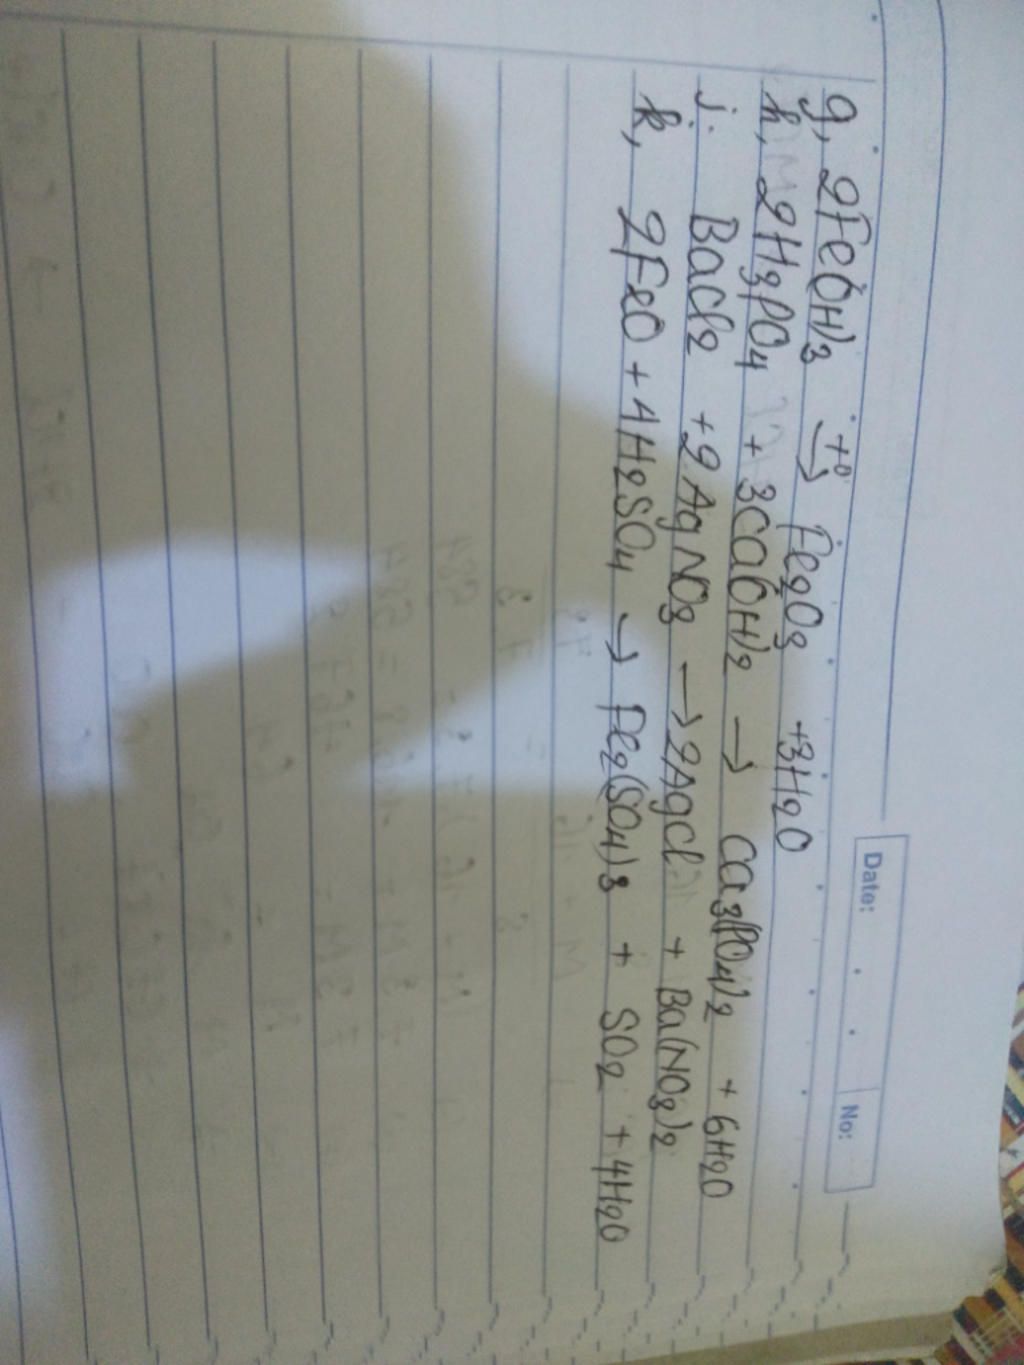 Date: No:
g, 2Fe(OH)3 +° → Fe2O3 +3H2O
h, 2H3PO4 + 3Ca(OH)2 → Ca3(PO4)2 + 6H2O
j. BaCl2 +2AgNO3 → 2AgCl + Ba(NO3)2
k, 2FeO + 4H2SO4 → Fe2(SO4)3 + SO2 + 4H2O